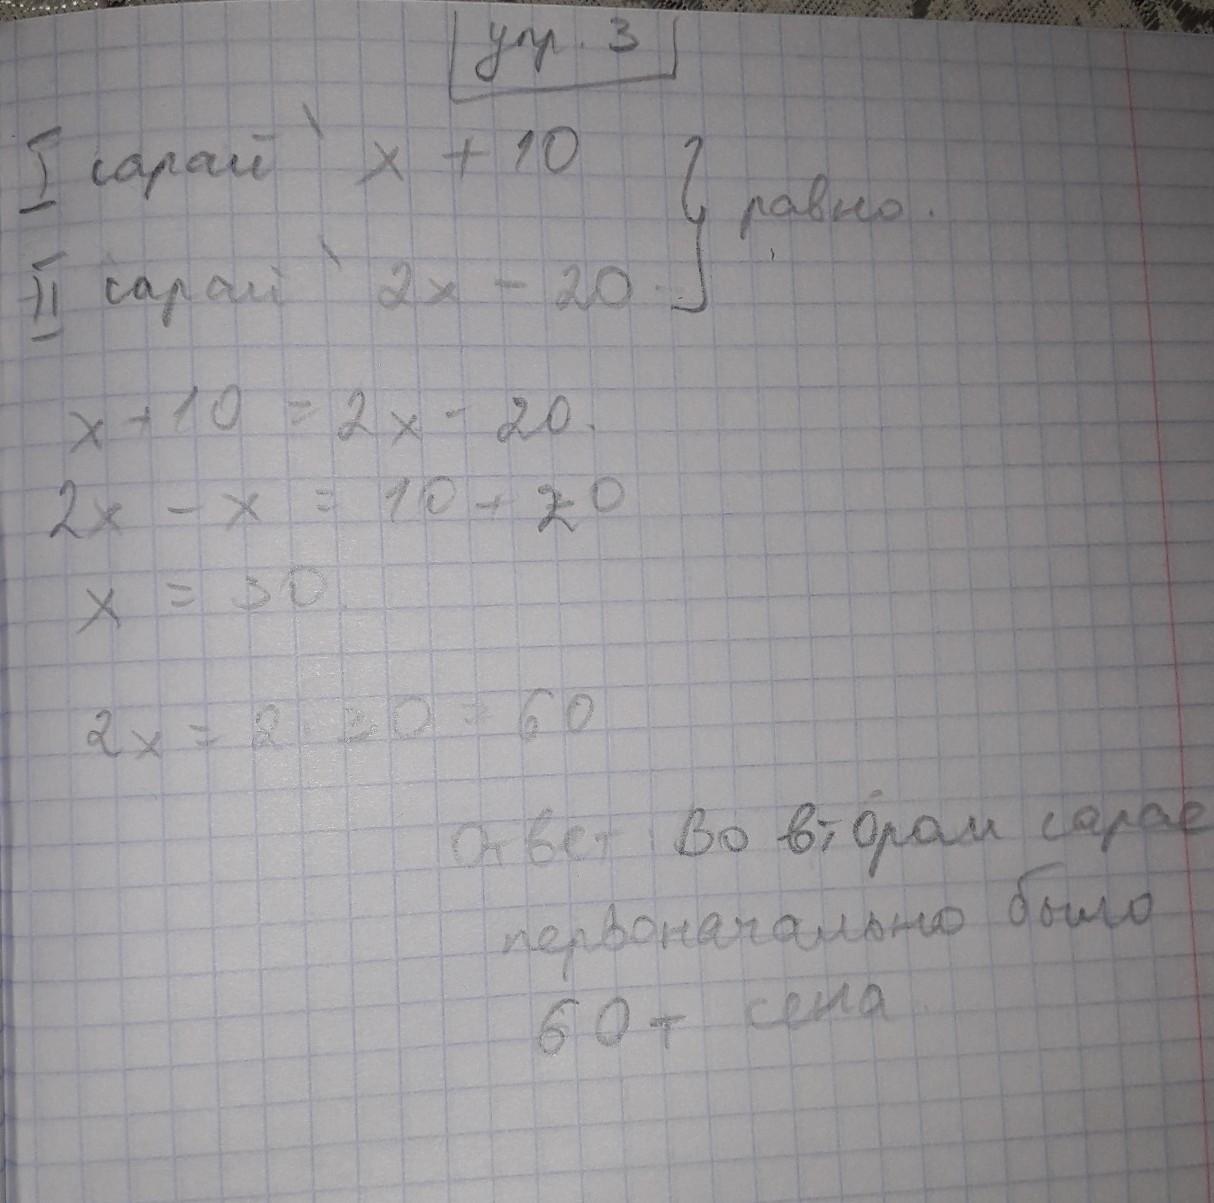 упр. 3
I сарай x + 10
II сарай 2x - 20
равно.
x + 10 = 2x - 20.
2x - x = 10 + 20
x = 30
2x = 2 · 30 = 60
Ответ: Во втором сарае
первоначально было
60 т сена